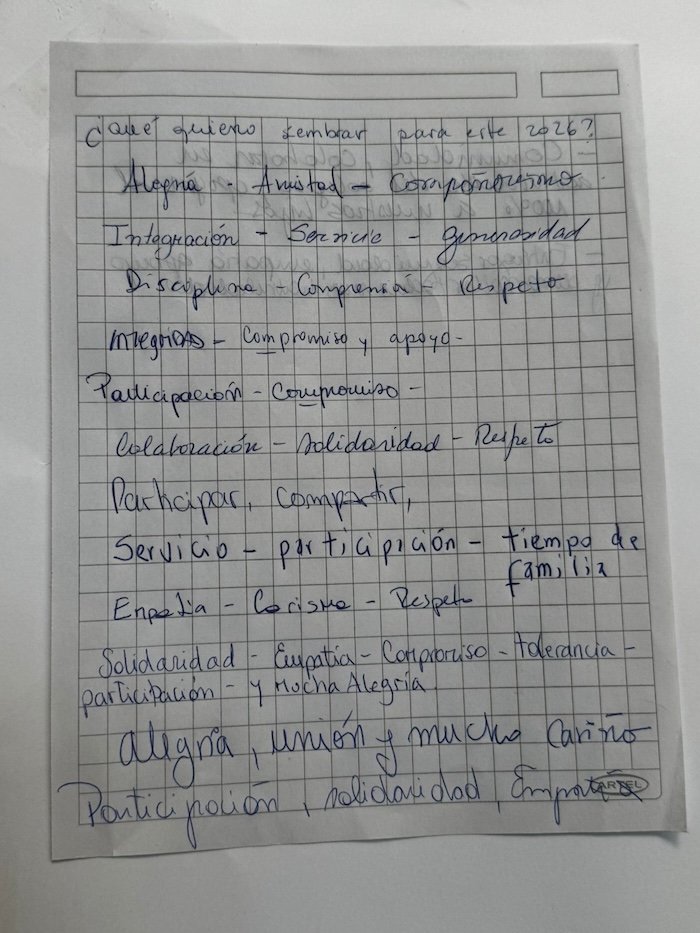 ¿Qué quiero sembrar para este 2026?
Alegría - Amistad - Compañerismo.
Integración - Servicio - generosidad
Disciplina - Comprensá - Respeto
Integridad - Compromiso y apoyo -
Participación - Compromiso -
Colaboración - solidaridad - Respeto
Participar, compartir,
Servicio - participición - tiempo de
familia
Enpatia - Carisma - Respeto
Solidaridad - Empatía - Compromiso - tolerancia -
participación - y Mucha Alegría.
alegría, unión y mucho cariño
Participación, solidaridad, Empatía